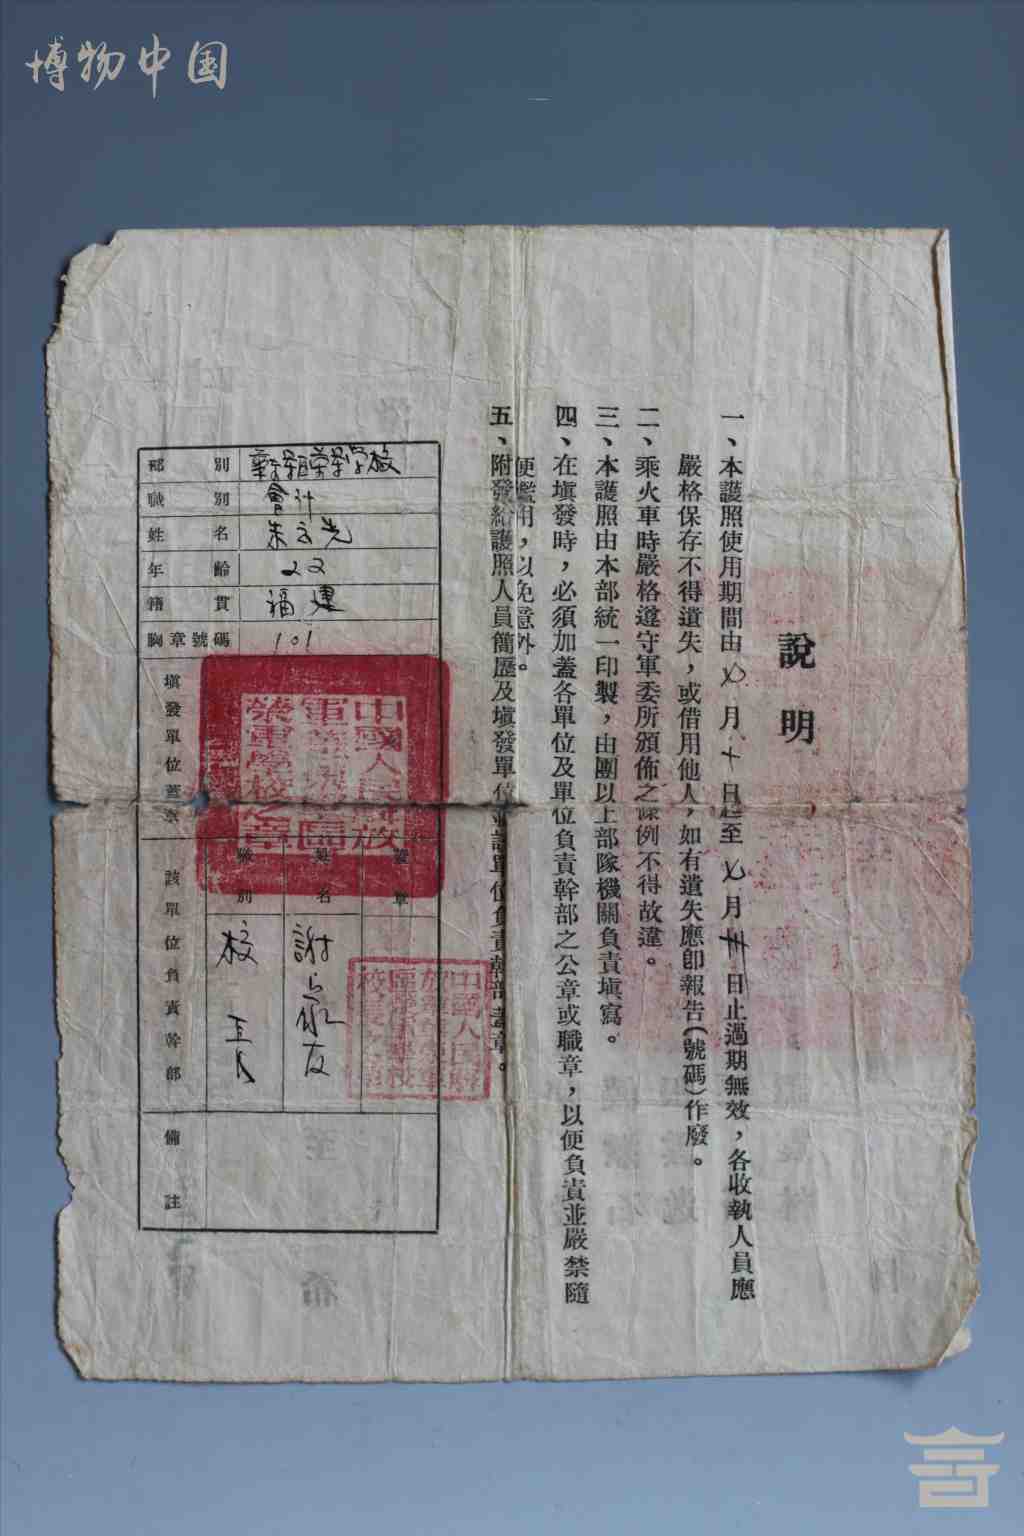 博物中国
說明
一、本護照使用期間由 月十日起至 月卅日止過期無效，各收執人員應
嚴格保存不得遺失，或借用他人，如有遺失應卽報告（號碼）作廢。
二、乘火車時嚴格遵守軍委所頒佈之條例不得故違。
三、本護照由本部統一印製，由團以上部隊機關負責填寫。
四、在塡發時，必須加蓋各單位及單位負責幹部之公章或職章，以便負責並嚴禁隨
便濫用，以免意外。
五、附發給護照人員簡歷及塡發單位並該單位負責幹部蓋章。
部別 榮軍學校
職別 會計
姓名 朱立先
年齡 22
籍貫 福建
胸章號碼 101
塡發單位蓋章
中國人民解放
軍華東軍區
榮軍學校之章
該單位負責幹部
職別 姓名 蓋章
校長 謝友
備註